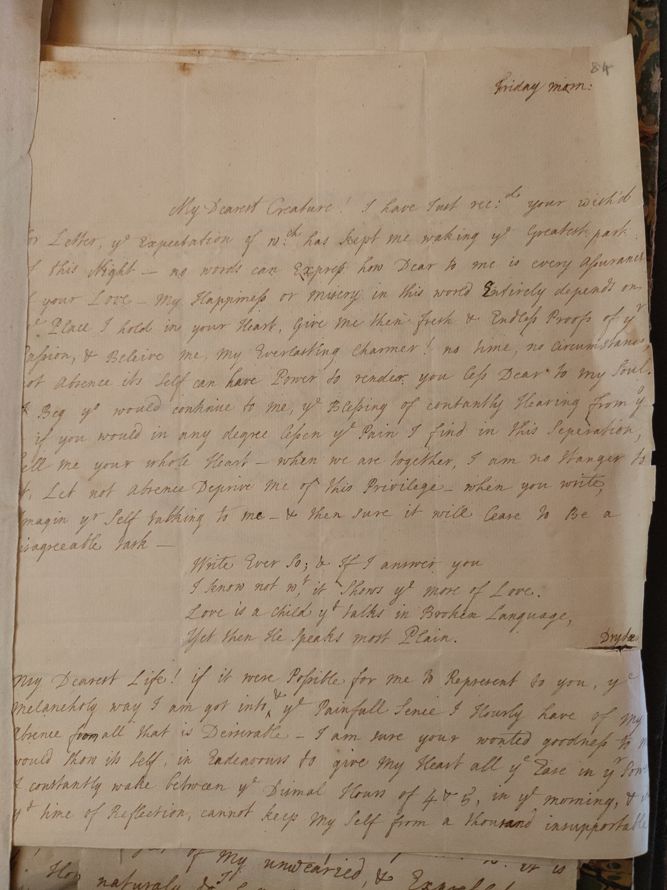 84
Friday morn:
My Dearest Creature! I have Just rec:d your wish'd
for Letter, ye Expectation of wch has kept me waking ye Greatest part
of this Night – no words can Express how Dear to me is every assurance
of your Love – My Happiness or misery in this world Entirely depends on
ye Place I hold in your Heart, Give me then fresh & Endless Proofs of yr
Passion, & Beleive me, my Everlasting Charmer! no time, no Circumstance,
not absence its Self can have Power to render you less Dear to my Soul.
I Beg you would continue to me, ye Blessing of constantly Hearing from
if you would in any degree lessen ye Pain I find in this Seperation,
tell me your whole Heart – when we are together, I am no stranger to
it, Let not absence Deprive me of this Privilage – when you write,
Imagin yr Self talking to me – & then sure it will Cease to Be a
disagreeable task –
Write Ever So; & If I answer you
I know not wt, it Shows ye more of Love.
Love is a Child yt talks in Broken Language,
Yet then He Speaks most Plain.
Dryden
My Dearest Life! if it were Possible for me to Represent to you, ye
melancholy way I am got into, & ye Painfull Sense I Hourly have of my
absence from all that is Desirable – I am sure your wonted goodness to
would shew its self, in Endeavours to give my Heart all ye Ease in yr
I constantly wake between ye Dismal Hours of 4 & 5, in ye morning, &
yt time of Reflection, cannot keep my Self from a thousand insupportable
of my unwearied &
it is
How naturaly &